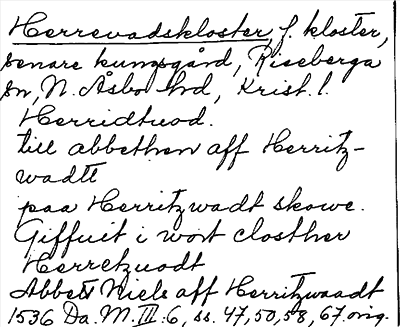 Herrevadskloster, f. kloster,
senare kungsgård, Riseberga
sn, N. Åsbo hd, Krist. l.
Herridtuod.
till abbethen aff Herritz-
wadtt
paa Herritzwadt skowe.
Giffuit i wort closther
Herretzuodt
Abbet Niels aff Herritzwaadt
1536 Da. M. III:6, ss. 47, 50, 58, 67. orig.